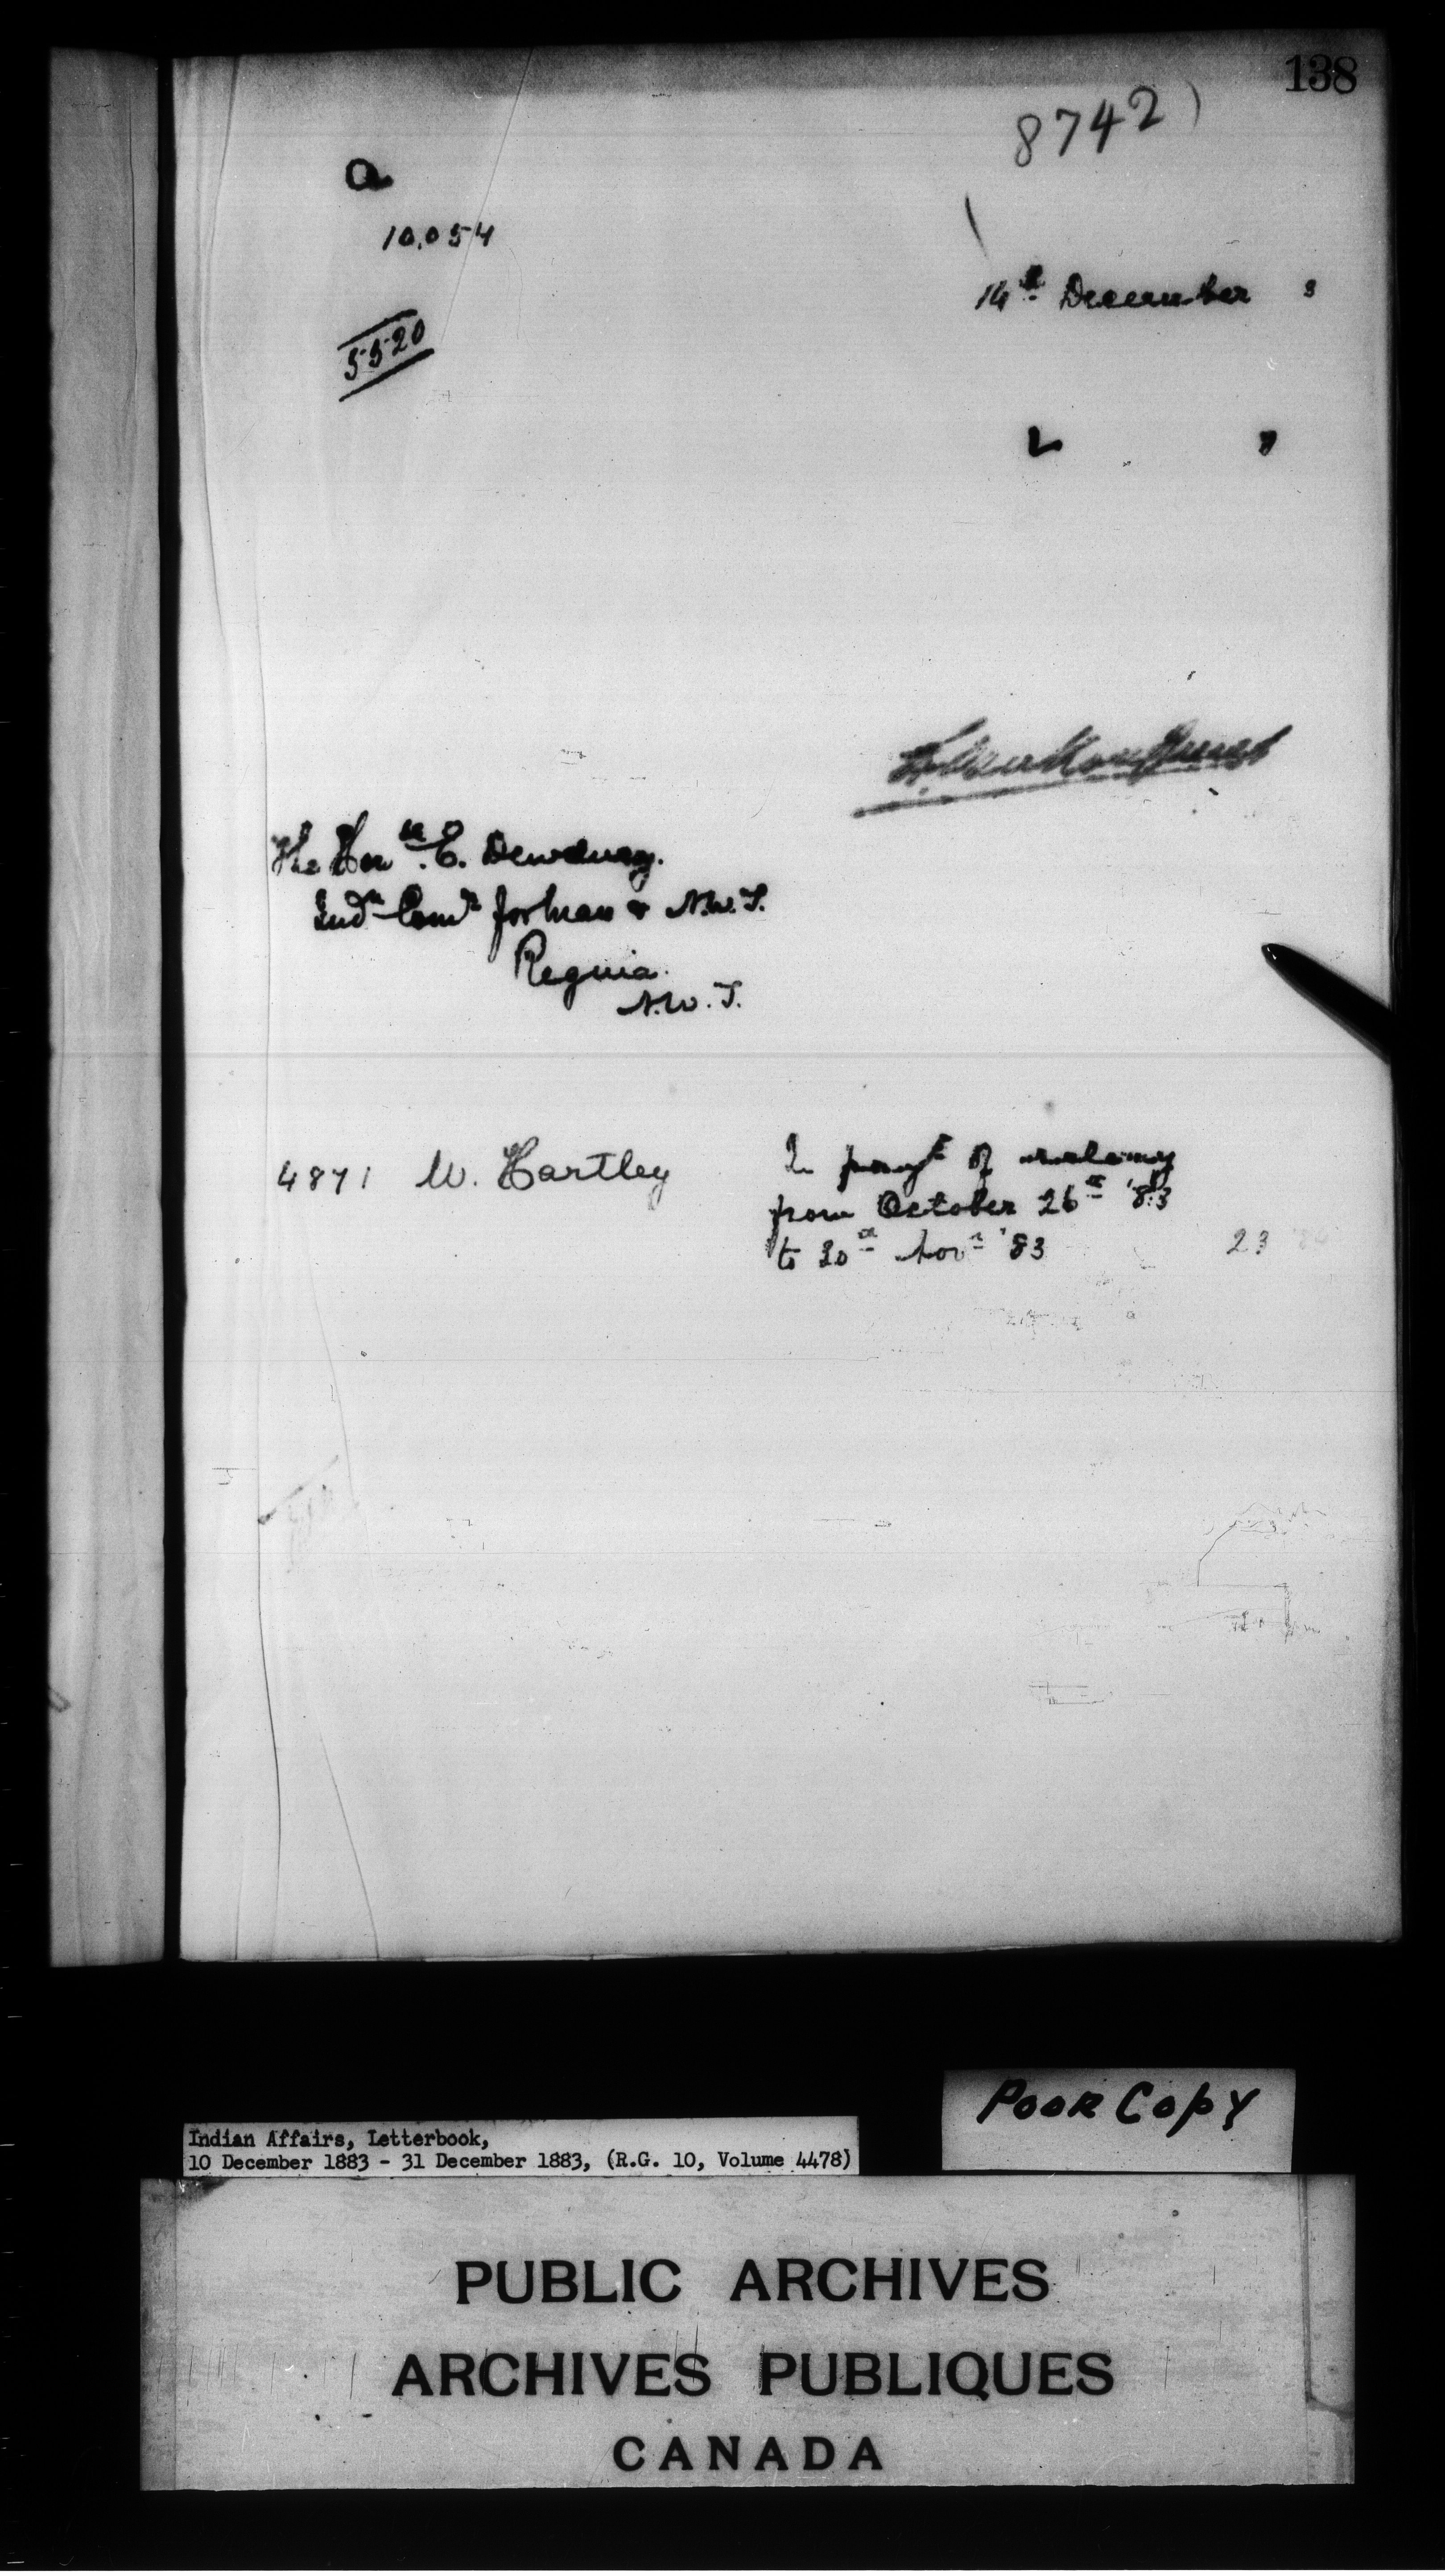 138
8742
a
10.054
14th December 3
5520
L "
The Honle. E. Dewdney.
Indn Comr for Man & N.W.T.
Regina.
N.W.T.
4871 W. Hartley In payt of salary
from October 26th '83
to 30th Novr '83 23
Poor Copy
Indian Affairs, Letterbook,
10 December 1883 - 31 December 1883, (R.G. 10, Volume 4478)
PUBLIC ARCHIVES
ARCHIVES PUBLIQUES
CANADA